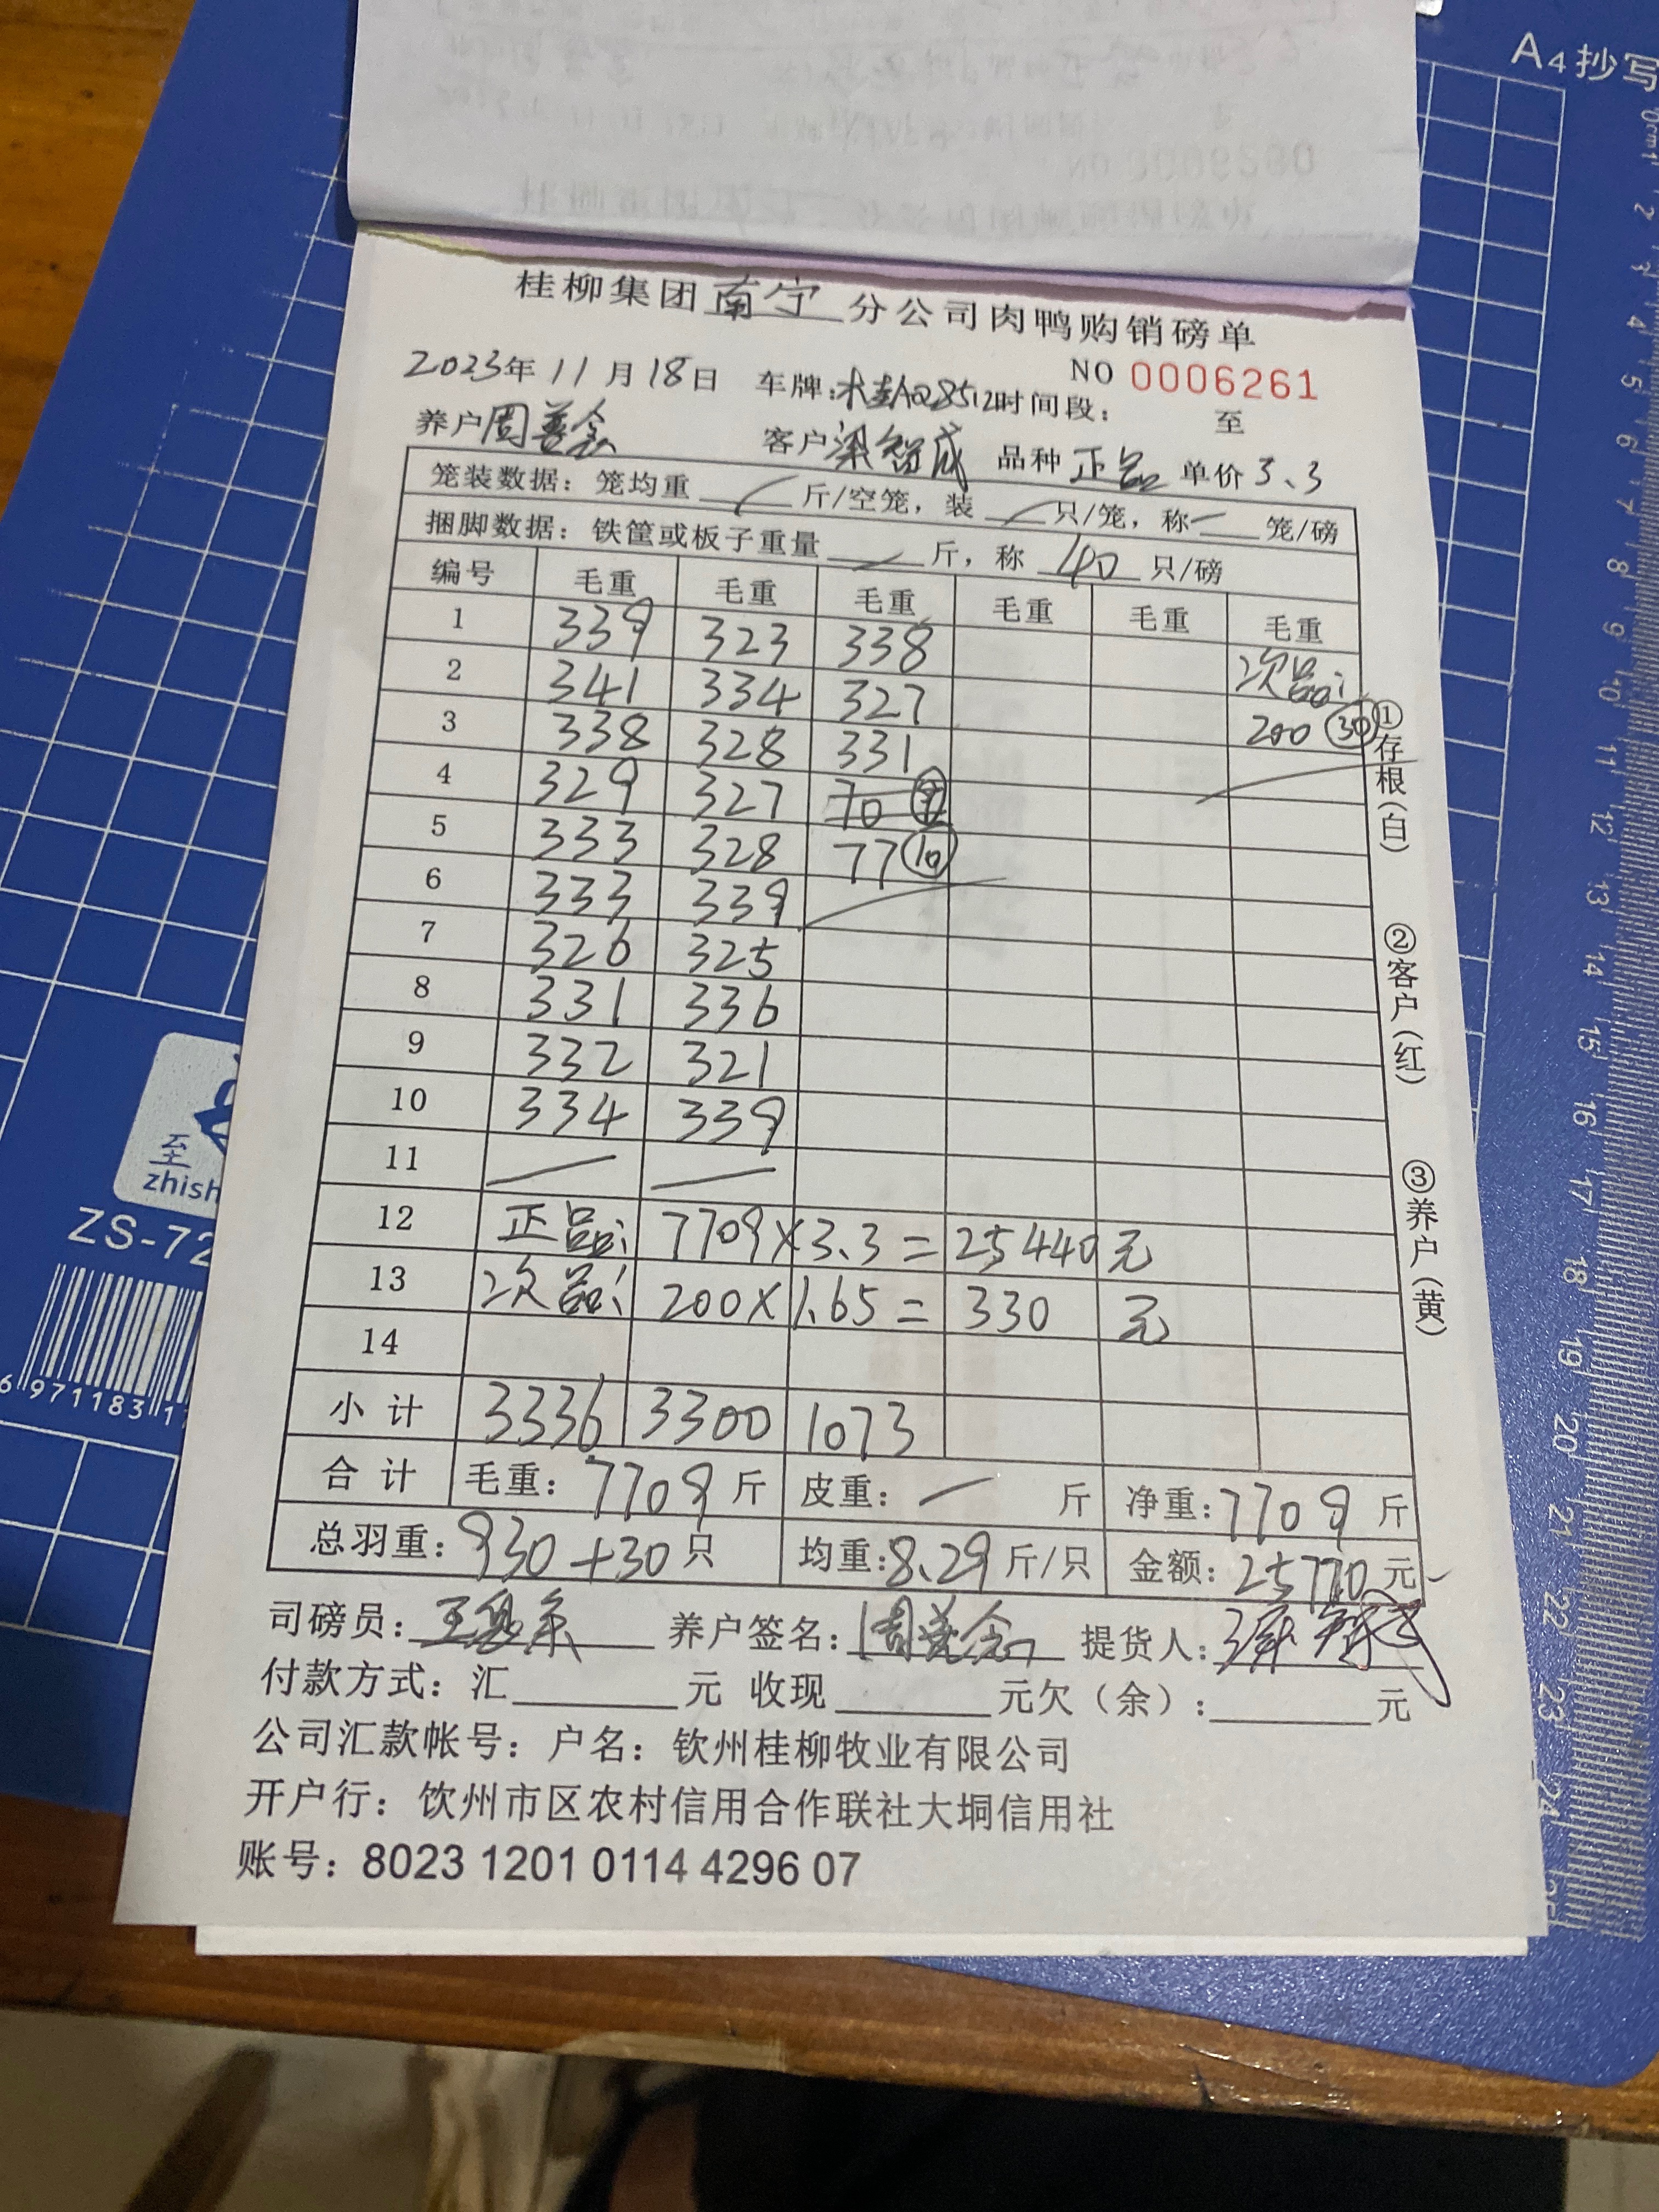 A4抄写
桂柳集团南宁分公司肉鸭购销磅单
NO 0006261
2023年11月18日 车牌:桂A028512时间段: 至
养户周善念 客户梁智成 品种正品 单价3、3
笼装数据：笼均重 / 斤/空笼，装 / 只/笼，称 / 笼/磅
捆脚数据：铁筐或板子重量 / 斤，称 40 只/磅
编号 毛重 毛重 毛重 毛重 毛重 毛重
1 339 323 338 次品:
2 341 334 327 200 (30)
3 338 328 331
4 329 327 70
5 333 328 77 (10)
6 333 339
7 326 325
8 331 336
9 332 321
10 334 339
11 / /
12 正品: 7709×3.3=25440元
13 次品: 200×1.65=330元
14
小计 3336 3300 1073
合计 毛重：7709斤 皮重：/ 斤 净重：7709斤
总羽重：930+30只 均重:8.29斤/只 金额：25770元
司磅员: 养户签名:周善念 提货人:
付款方式：汇 元 收现 元欠（余）: 元
公司汇款帐号：户名：钦州桂柳牧业有限公司
开户行：饮州市区农村信用合作联社大垌信用社
账号：8023 1201 0114 4296 07
①存根(白) ②客户(红) ③养户(黄)
至
zhish
ZS-72
6 971183 1
0cm1 2 3 4 5 6 7 8 9 10 11 12 13 14 15 16 17 18 19 20 21 22 23 24 25